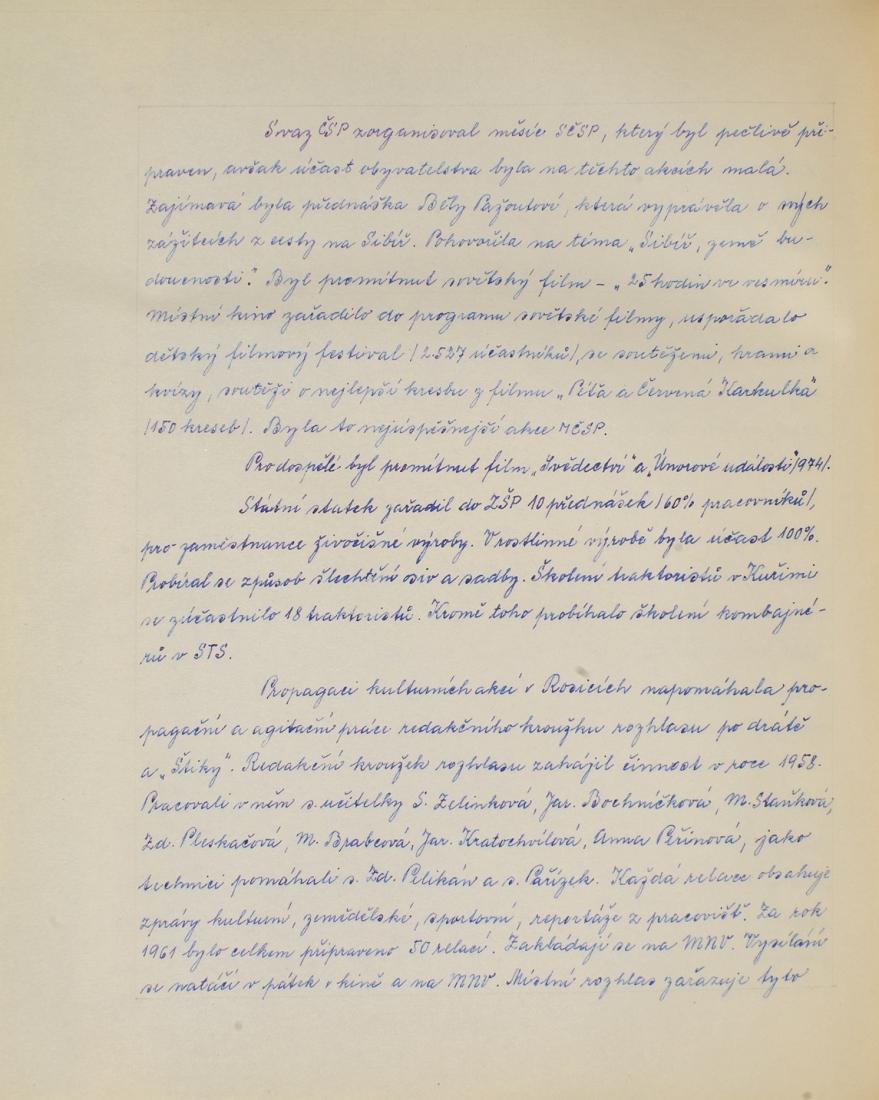 Svaz ČSP zorganisoval měsíc SČSP, který byl pečlivě při-
praven, avšak účast obyvatelstva byla na těchto akcích malá.
Zajímavá byla přednáška Běly Pažoutové, která vyprávěla o svých
zážitcích z cesty na Sibiř. Pohovořila na téma „Sibiř, země bu-
doucnosti." Byl promítnut sovětský film - „25 hodin ve vesmíru".
Místní kino zařadilo do programu sovětské filmy, uspořádalo
dětský filmový festival /2.527 účastníků/, se soutěžemi, hrami a
kvízy, soutěži o nejlepší kresbu z filmu „Píťa a Červená Karkulka"
/150 kreseb/. Byla to nejúspěšnejší akce MČSP.
Pro dospělé byl promítnut film „Svědectví" a „Únorové události"/974/.
Státní statek zařadil do ZŠP 10 přednášek /60% pracovníků/,
pro zaměstnance živočišné výroby. V rostlinné výrobě byla účast 100%.
Probíral se způsob šlechtění osiv a sadby. Školení traktoristů v Kuřimi
se zúčastnilo 18 traktoristů. Kromě toho probíhalo školení kombajné-
rů v STS.
Propagaci kulturních akcí v Rosicích napomáhala pro-
pagační a agitační práce redakčního kroužku rozhlasu po drátě
a „Štiky". Redakční kroužek rozhlasu zahájil činnost v roce 1958.
Pracovali v něm s. učitelky S. Zelinková, Jar. Bochníčková, M. Staňková,
Zd. Pleskačová, M. Brabcová, Jar. Kratochvílová, Anna Peřinová, jako
technici pomáhali s. Zd. Pelikán a s. Pařízek. Každá relace obsahuje
zprávy kulturní, zemědělské, sportovní, reportáže z pracovišť. Za rok
1961 bylo celkem připraveno 50 relací. Zakládají se na MNV. Vysílání
se natáčí v pátek v kině a na MNV. Místní rozhlas zařazuje tyto